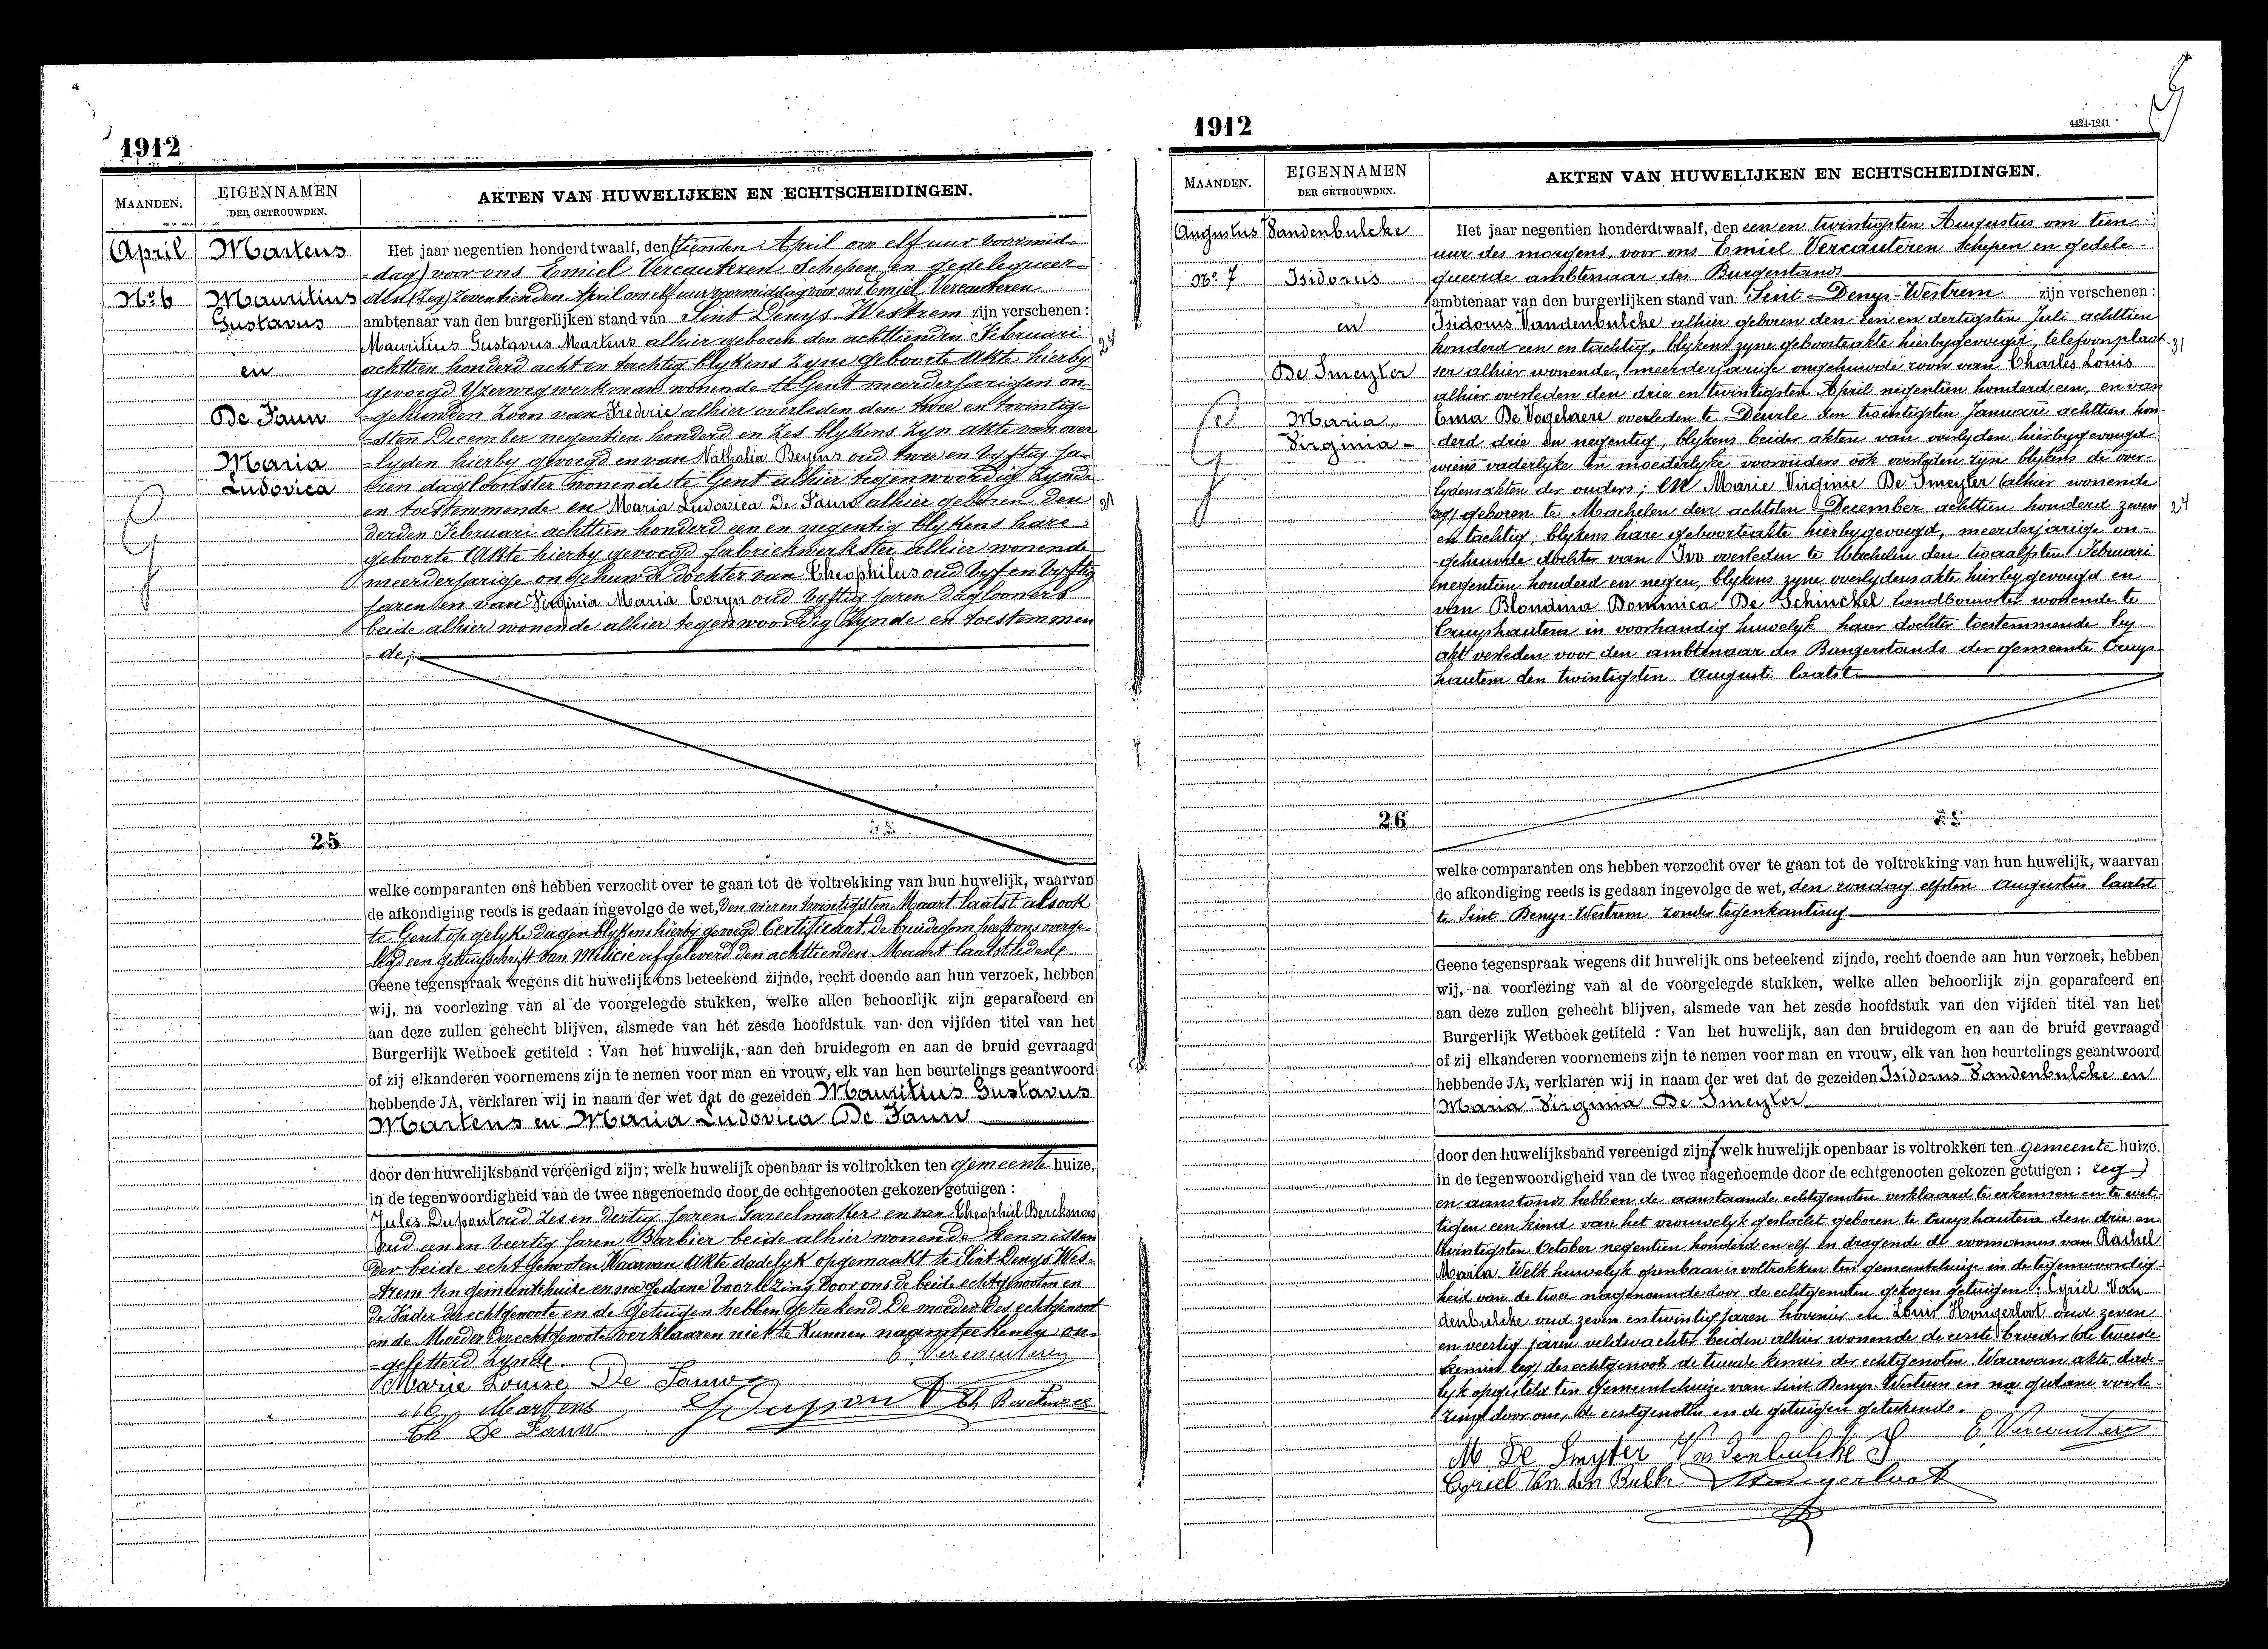 1912
MAANDEN.
EIGENNAMEN
DER GETROUWDEN.
AKTEN VAN HUWELIJKEN EN ECHTSCHEIDINGEN.
April
No 6
Martens
Mauritius
Gustavus
en
De Fauw
Maria
Ludovica
Het jaar negentien honderd twaalf, den (tienden April om elf uur voormid-
-dag) voor ons Emiel Vercauteren Schepen en gedelegueer-
den (Zeg) Zeventienden April om elf uur voormiddag voor ons Emiel Vercauteren
ambtenaar van den burgerlijken stand van Sint Denys-Westrem zijn verschenen:
Mauritius Gustavus Martens alhier geboren den achttienden Februari
24
achttien honderd acht en tachtig blykens zyne geboorte akte hierby
gevoegd Yzerwegwerkman wonende te Gent meerderjarigen on-
gehuwden zoon van Frederic alhier overleden den twee en twintig-
sten December negentien honderd en zes blykens zyn akte van over
-lyden hierby gevoegd en van Nathalia Beyens oud twee en vyftig ja-
ren dagloonster wonende te Gent alhier tegenwoordig zynde
en toestemmende en Maria Ludovica De Fauw alhier geboren den
21
derden Februari achttien honderd een en negentig blykens hare
geboorte Akte hierby gevoegd fabriekwerkster alhier wonende
meerderjarige ongehuwde dochter van Theophilus oud vyf en vyftig
jaren en van Virginia Maria Coryn oud vyftig jaren dagloners
beide alhier wonende alhier tegenwoordig zynde en toestemmen
-de;
25
welke comparanten ons hebben verzocht over te gaan tot de voltrekking van hun huwelijk, waarvan
de afkondiging reeds is gedaan ingevolge de wet, den vier en twintigsten Maart laatst alsook
te Gent op gelyke dagen blykens hierby gevoegd Certificaat. De bruidegom heeft ons overge-
legd een getuigschrift van Milicie afgeleverd den achttienden Maart laatstleden
Geene tegenspraak wegens dit huwelijk ons beteekend zijnde, recht doende aan hun verzoek, hebben
wij, na voorlezing van al de voorgelegde stukken, welke allen behoorlijk zijn geparafeerd en
aan deze zullen gehecht blijven, alsmede van het zesde hoofdstuk van den vijfden titel van het
Burgerlijk Wetboek getiteld : Van het huwelijk, aan den bruidegom en aan de bruid gevraagd
of zij elkanderen voornemens zijn te nemen voor man en vrouw, elk van hen beurtelings geantwoord
hebbende JA, verklaren wij in naam der wet dat de gezeiden Mauritius Gustavus
Martens en Maria Ludovica De Fauw
door den huwelijksband vereenigd zijn; welk huwelijk openbaar is voltrokken ten gemeente huize,
in de tegenwoordigheid van de twee nagenoemde door de echtgenooten gekozen getuigen :
Jules Dupont oud zes en dertig jaren Gareelmaker en van Theophiel Berckmoes
oud een en veertig jaren Barbier beide alhier wonende kennissen
der beide echtgenooten Waarvan Akte dadelyk opgemaakt te Sint Denys Wes-
trem ten gemeentehuize en na gedane voorlezing door ons de beide echtgenooten en
de Vader der echtgenoote en de getuigen hebben geteekend De moeder des echtgenoot
en de Moeder der echtgenoote verklaaren niet te kunnen naamteekenen on-
-geletterd zynde.
E. Vercauteren
Marie Louise De Fauw
Martens
Dupont
Th Berckmoes
Th De Fauw
1912
4424-1241
MAANDEN.
EIGENNAMEN
DER GETROUWDEN.
AKTEN VAN HUWELIJKEN EN ECHTSCHEIDINGEN.
Augustus
No 7
Vandenbulcke
Isidorus
en
De Smeyter
Maria,
Virginia -
Het jaar negentien honderdtwaalf, den een en twintigsten Augustus om tien
uur des morgens, voor ons Emiel Vercauteren Schepen en gedele-
gueerde ambtenaar des Burgerstands
ambtenaar van den burgerlijken stand van Sint-Denys-Westrem zijn verschenen:
Isidorus Vandenbulcke alhier geboren den een en dertigsten Juli achttien
honderd een en tachtig, blykens zyne geboorteakte hierbygevoegd, telefoonplaat-
31
ser alhier wonende, meerderjarige ongehuwde zoon van Charles Louis
alhier overleden den drie en twintigsten April negentien honderd een, en van
Ema De Vogelaere overleden te Deurle den twintigsten Januarii achttien hon-
derd drie en negentig, blykens beider akten van overlyden hierbygevoegd
wiens vaderlyke en moederlyke voorouders ook overleden zyn blykens de over-
lydensakten der ouders; en Marie Virginie De Smeyter (alhier wonende
zeg) geboren te Machelen den achtsten December achttien honderd zeven
24
en tachtig, blykens hare geboorteakte hierbygevoegd, meerderjarige on-
-gehuwde dochter van Ivo overleden te Machelen den twaalfsten Februari
negentien honderd en negen, blykens zyne overlydensakte hierbygevoegd en
van Blondina Dominica De Schinckel landbouwster wonende te
Cruyshautem in voorhandig huwelyk haar dochter toestemmende by
akt verleden voor den ambtenaar des Burgerstands der gemeente Cruys-
hautem den twintigsten Augusti laatst
26
welke comparanten ons hebben verzocht over te gaan tot de voltrekking van hun huwelijk, waarvan
de afkondiging reeds is gedaan ingevolge de wet, den zondag elfsten Augustus laatst
te Sint Denys-Westrem zonder tegenkanting
Geene tegenspraak wegens dit huwelijk ons beteekend zijnde, recht doende aan hun verzoek, hebben
wij, na voorlezing van al de voorgelegde stukken, welke allen behoorlijk zijn geparafeerd en
aan deze zullen gehecht blijven, alsmede van het zesde hoofdstuk van den vijfden titel van het
Burgerlijk Wetboek getiteld : Van het huwelijk, aan den bruidegom en aan de bruid gevraagd
of zij elkanderen voornemens zijn te nemen voor man en vrouw, elk van hen beurtelings geantwoord
hebbende JA, verklaren wij in naam der wet dat de gezeiden Isidorus Vandenbulcke en
Maria Virginia De Smeyter
door den huwelijksband vereenigd zijn (welk huwelijk openbaar is voltrokken ten gemeente huize,
in de tegenwoordigheid van de twee nagenoemde door de echtgenooten gekozen getuigen : zeg)
en aanstonds hebben de aanstaande echtgenoten verklaard te erkennen en te wet-
tigen een kind van het vrouwelyk geslacht geboren te Cruyshautem den drie en
twintigsten October negentien honderd en elf en dragende de voornamen van Rachel
Maria. Welk huwelyk openbaar is voltrokken ten gemeentehuize in de tegenwoordig-
heid van de twee nagenaamde door de echtgenoten gekozen getuigen : Cyriel Van
denbulcke oud zeven en twintig jaren hovenier en Louis Hongerloot oud zeven
en veertig jaren veldwachter beiden alhier wonende de eerste broeder (de tweede
kennis zeg) des echtgenoots de tweede kennis der echtgenoten. Waarvan akte dade-
lyk opgesteld ten gemeentehuize van Sint Denys-Westrem en na gedane voorle-
zing door ons, de echtgenoten en de getuigen geteekend.
E. Vercauteren
M De Smyter Vandenbulcke I
Cyriel Van den Bulke Hongerloot